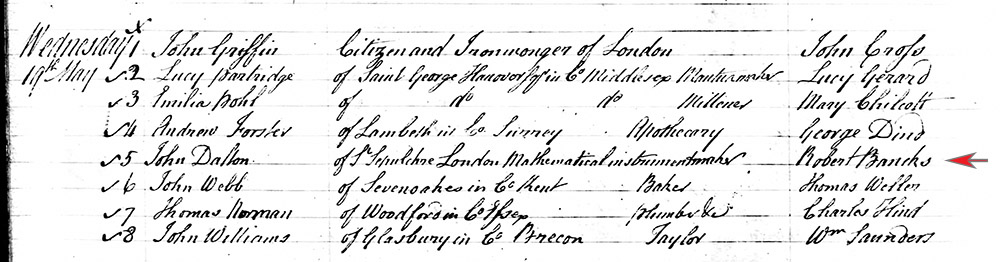 Wednesday x 1 John Griffin Citizen and Ironmonger of London John Cross
19th May 2 Lucy Partridge of Saint George Hanover Sqr in Co Middlesex Mantuamaker Lucy Gerard
3 Emilia Pohl of do do Millener Mary Chilcott
4 Andrew Forster of Lambeth in Co Surrey Apothecary George Dind
5 John Dalton of St Sepulchre London Mathematical instrumentmaker Robert Bancks
6 John Webb of Sevenoakes in Co Kent Baker Thomas Weller
7 Thomas Norman of Woodford in Co Essex Plumber &c Charles Hind
8 John Williams of Glasbury in Co Brecon Taylor Wm Saunders